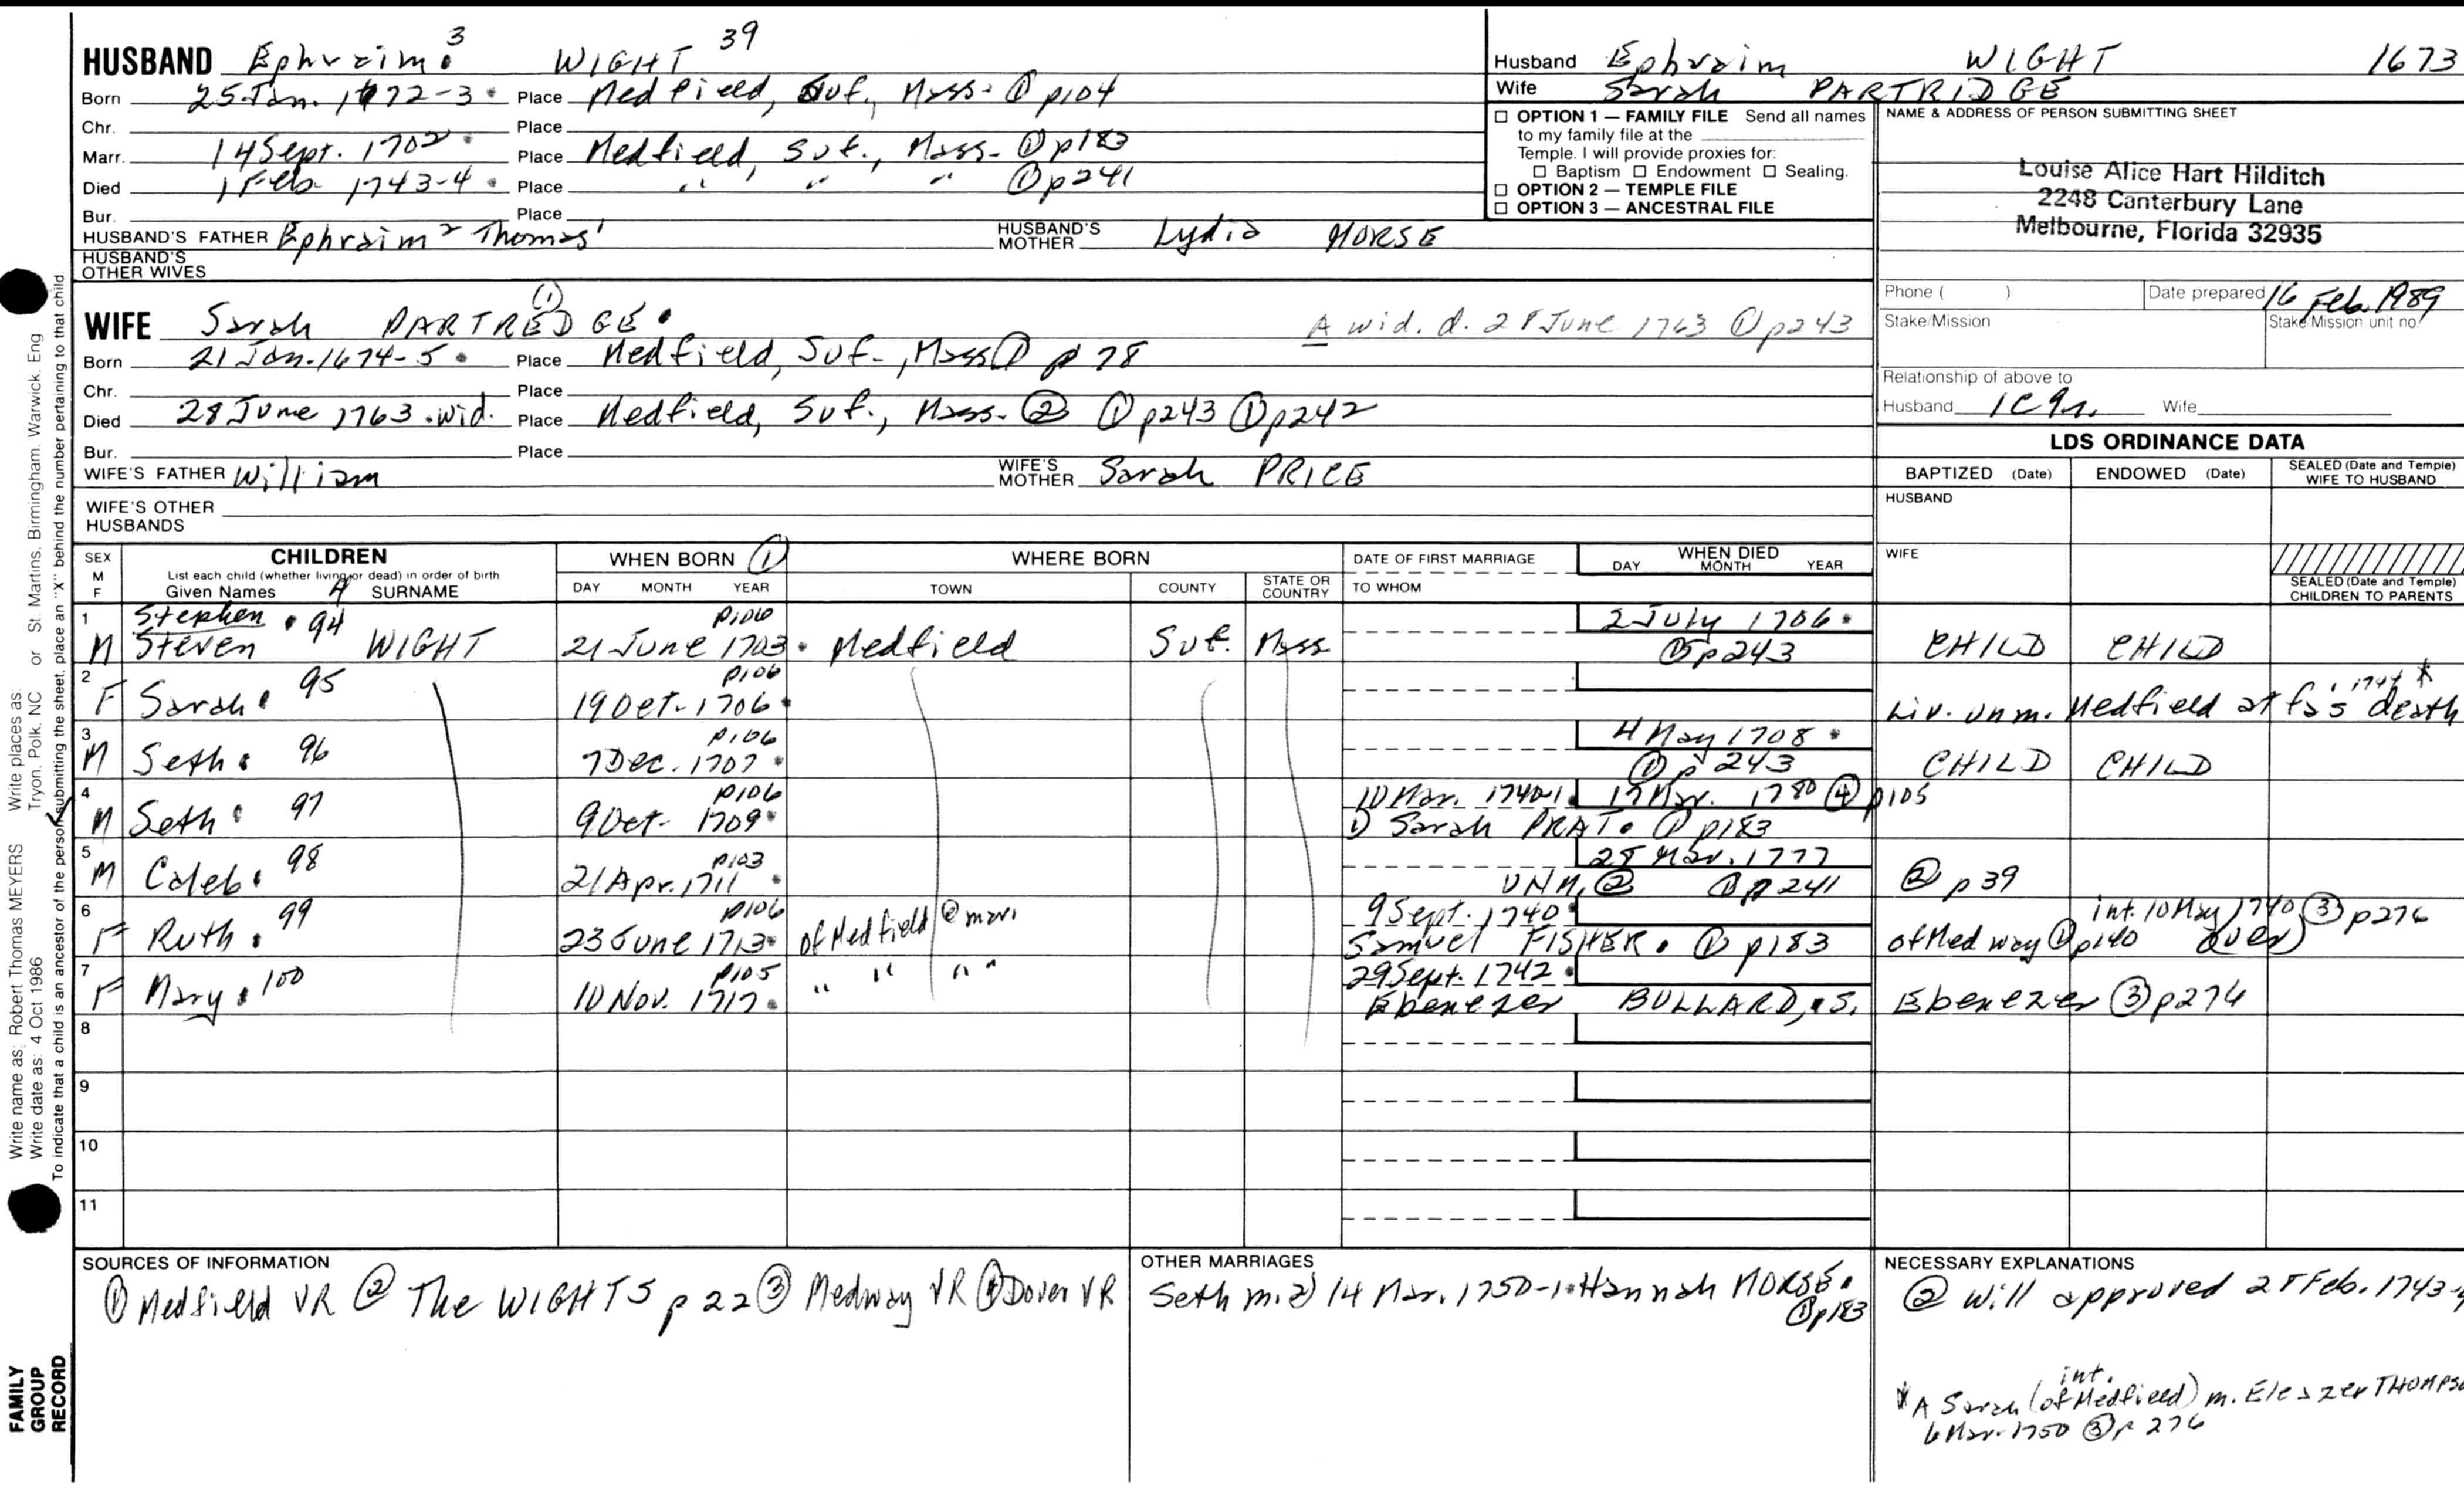 HUSBAND Ephraim 3 WIGHT 39
Born 25 Jan. 1672-3 Place Medfield, Suf., Mass. ① p104
Chr. Place
Marr. 14 Sept. 1702 Place Medfield, Suf., Mass. ① p183
Died 1 Feb. 1743-4 Place " " " ① p241
Bur. Place
HUSBAND'S FATHER Ephraim 2 Thomas 1 HUSBAND'S MOTHER Lydia MORSE
HUSBAND'S OTHER WIVES
Husband Ephraim WIGHT 1673
Wife Sarah PARTRIDGE
☐ OPTION 1 — FAMILY FILE Send all names
to my family file at the
Temple. I will provide proxies for:
☐ Baptism ☐ Endowment ☐ Sealing.
☐ OPTION 2 — TEMPLE FILE
☐ OPTION 3 — ANCESTRAL FILE
NAME & ADDRESS OF PERSON SUBMITTING SHEET
Louise Alice Hart Hilditch
2248 Canterbury Lane
Melbourne, Florida 32935
Phone ( ) Date prepared 16 Feb. 1989
Stake/Mission Stake/Mission unit no.
Relationship of above to
Husband 1C9r. Wife
WIFE Sarah PARTREDGE ①
A wid. d. 28 June 1763 ① p243
Born 21 Jan. 1674-5 Place Medfield, Suf., Mass ① p 78
Chr. Place
Died 28 June 1763 wid. Place Medfield, Suf., Mass. ② ① p243 ① p242
Bur. Place
WIFE'S FATHER William WIFE'S MOTHER Sarah PRICE
WIFE'S OTHER HUSBANDS
LDS ORDINANCE DATA
BAPTIZED (Date) ENDOWED (Date) SEALED (Date and Temple) WIFE TO HUSBAND
HUSBAND
WIFE
SEALED (Date and Temple) CHILDREN TO PARENTS
SEX M F CHILDREN
List each child (whether living or dead) in order of birth
Given Names SURNAME
WHEN BORN ① DAY MONTH YEAR
WHERE BORN TOWN COUNTY STATE OR COUNTRY
DATE OF FIRST MARRIAGE TO WHOM
WHEN DIED DAY MONTH YEAR
1 M Stephen 94 p106 2 July 1706
Steven WIGHT 21 June 1703 Medfield Suf. Mass ① p243 CHILD CHILD
2 F Sarah 95 19 Oct. 1706 p106 Liv. unm. Medfield at fa's death 1744 *
3 M Seth 96 7 Dec. 1707 p106 4 May 1708 ① p 243 CHILD CHILD
4 M Seth 97 9 Oct. 1709 p106 10 Mar. 1740-1 17 Mar. 1780 ④ p105
1) Sarah PRAT ① p183
5 M Caleb 98 21 Apr. 1711 p103 28 Mar. 1777
UNM. ② ① p 241 ② p39
6 F Ruth 99 23 June 1713 p106 of Medfield @ marr 9 Sept. 1740
Samuel FISHER ① p183 of Medway ① p140 int. 10 May 1740 ③ p276 over
7 F Mary 100 10 Nov. 1717 p105 " " " " 29 Sept. 1742
Ebenezer BULLARD, S. Ebenezer ③ p276
8
9
10
11
SOURCES OF INFORMATION
① Medfield VR ② The WIGHTS p 22 ③ Medway VR ④ Dover VR
OTHER MARRIAGES
Seth m. 2) 14 Mar. 1750-1 Hannah MORSE
① p183
NECESSARY EXPLANATIONS
② Will approved 28 Feb. 1743-4
int.
* A Sarah (of Medfield) m. Eleazer
6 Mar. 1750 ③ p 276
Write name as: Robert Thomas MEYERS Write places as: Tryon, Polk, NC or St. Martins, Birmingham, Warwick, Eng
Write date as: 4 Oct 1986
To indicate that a child is an ancestor of the person submitting the sheet, place an "X" behind the number pertaining to that child
FAMILY
GROUP
RECORD